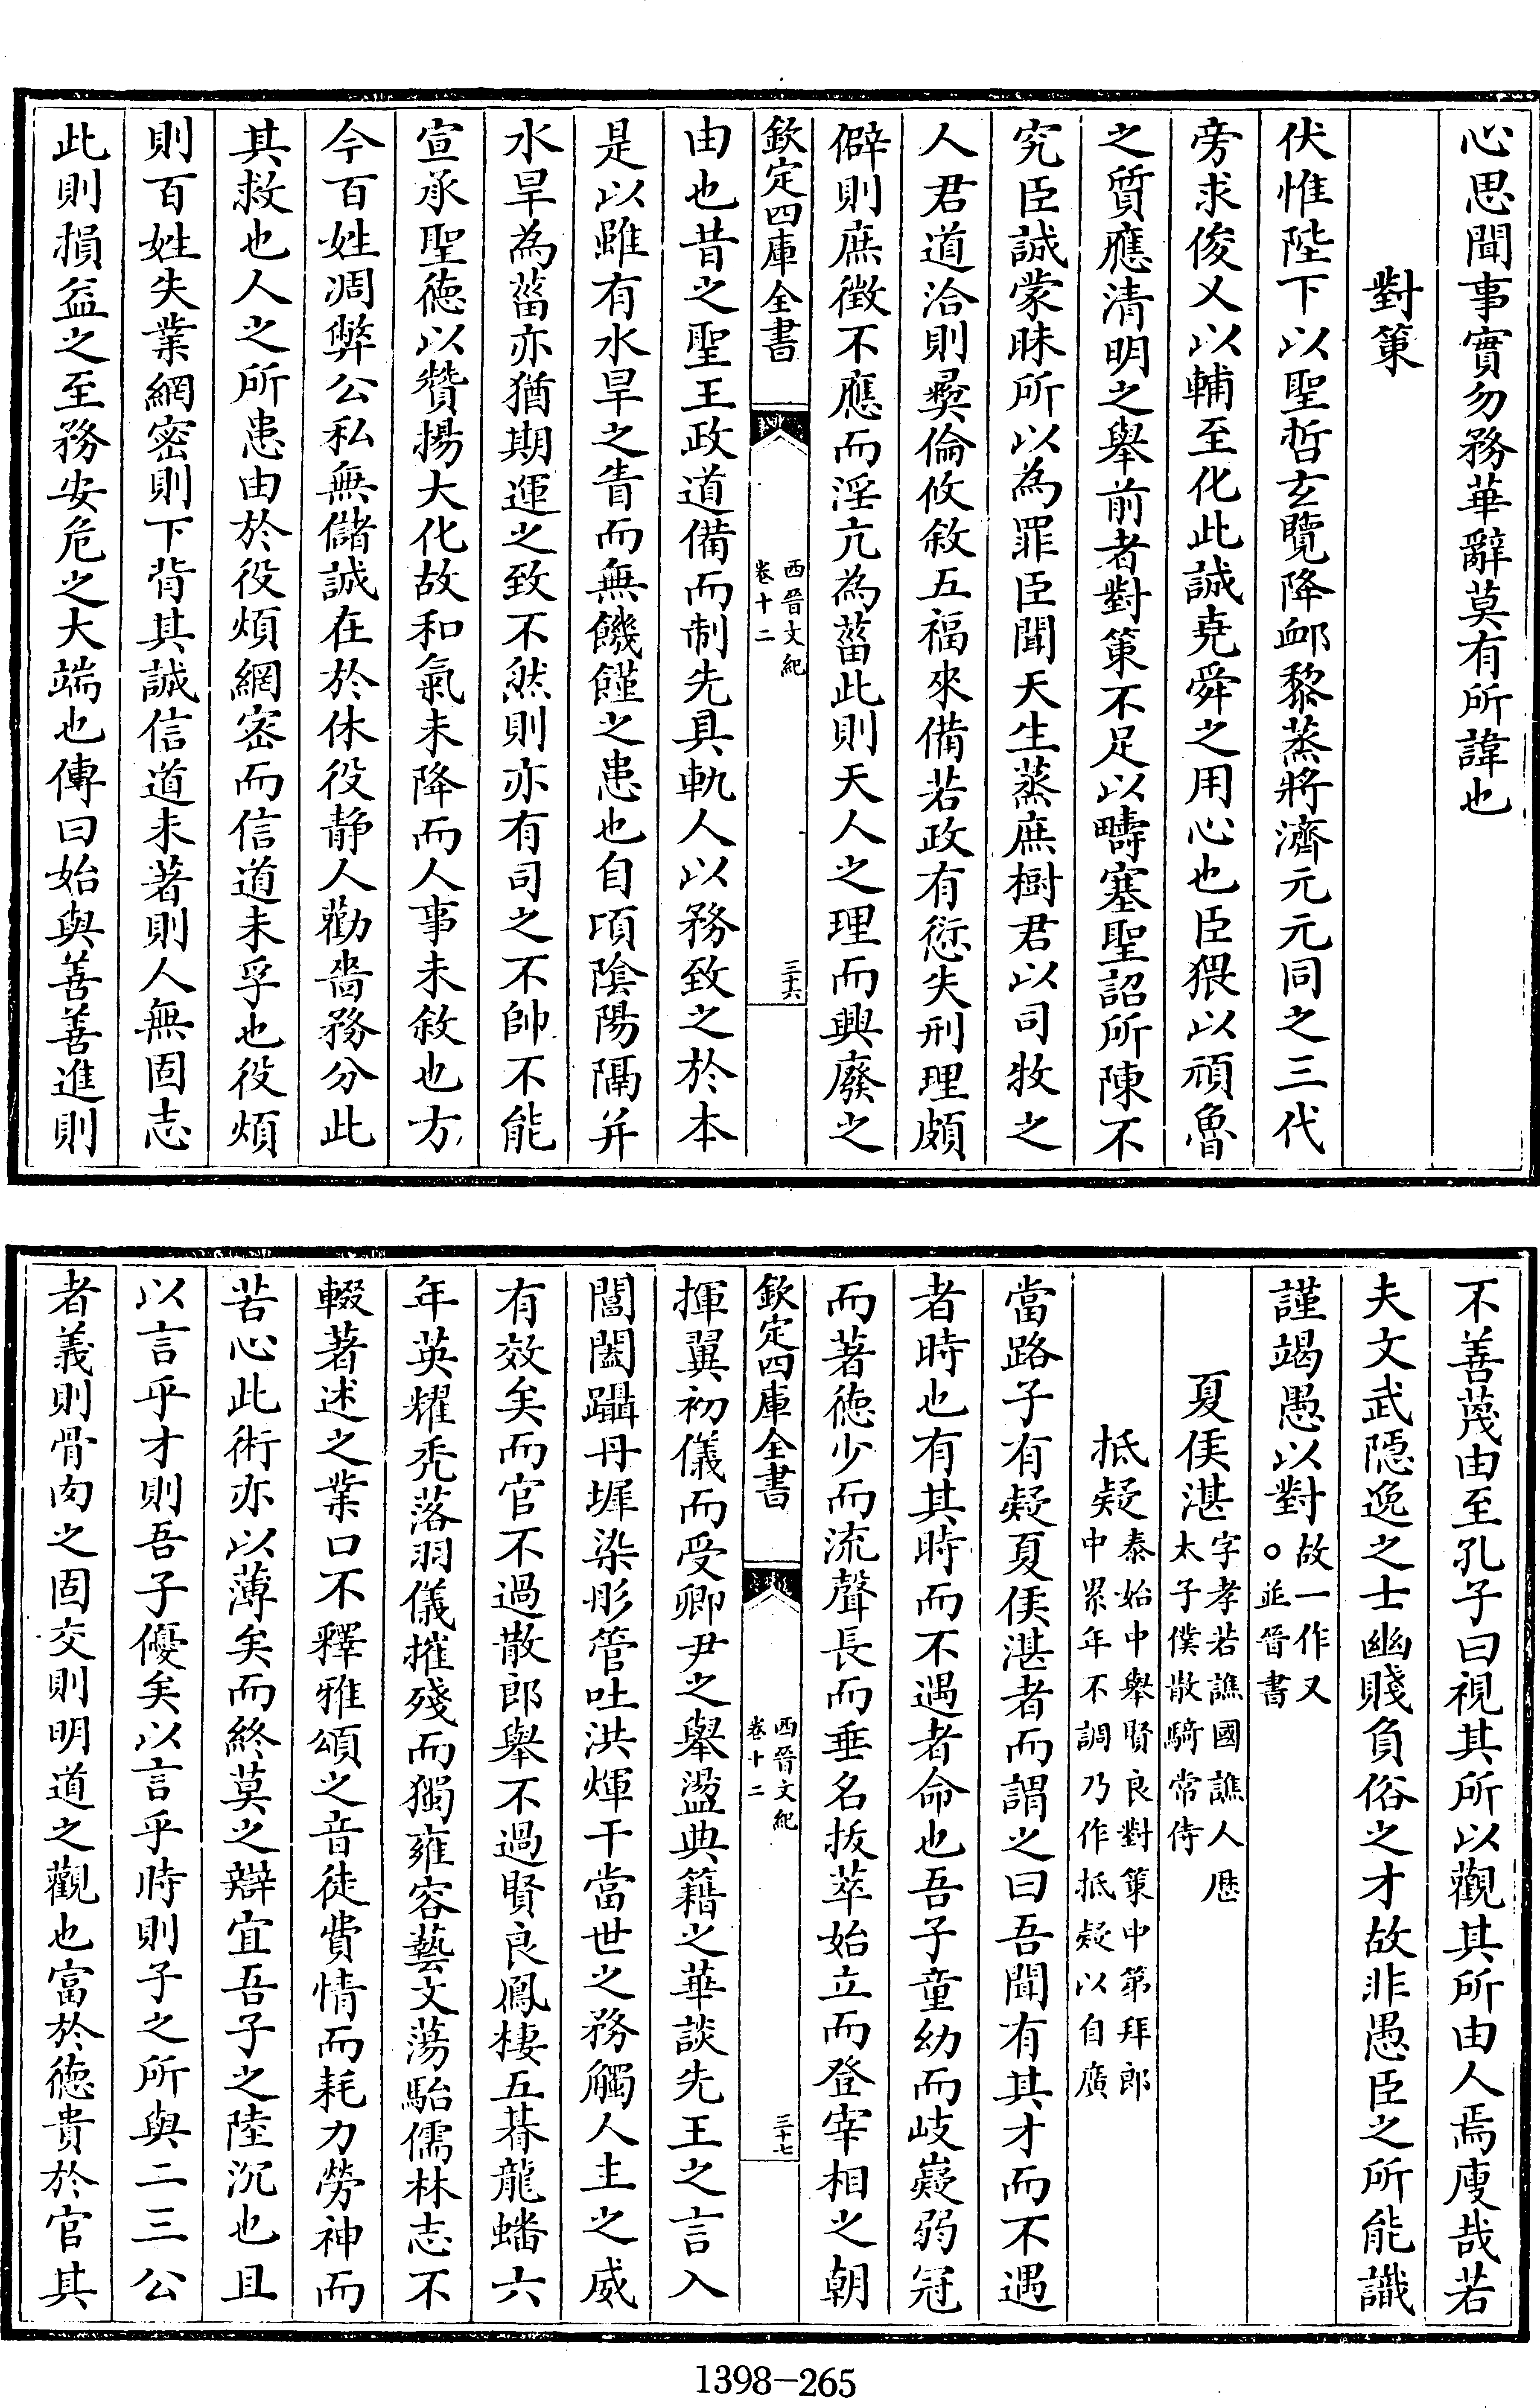 心思聞事實勿務華辭莫有所諱也
對策
伏惟陛下以聖哲玄覽降䘏黎蒸將濟元元同之三代
旁求俊乂以輔至化此誠堯舜之用心也臣猥以頑魯
之質應清明之舉前者對策不足以疇塞聖詔所陳不
究臣誠蒙昧所以為罪臣聞天生蒸庶樹君以司牧之
人君道洽則彛倫攸敘五福來備若政有愆失刑理頗
僻則庶徵不應而淫亢為菑此則天人之理而興廢之
欽定四庫全書
西晉文紀
卷十二
三十六
由也昔之聖王政道備而制先具軌人以務致之於本
是以雖有水旱之眚而無饑饉之患也自頃陰陽隔并
水旱為菑亦猶期運之致不然則亦有司之不帥不能
宣承聖徳以贊揚大化故和氣未降而人事未敘也方
今百姓凋弊公私無儲誠在於休役静人勸嗇務分此
其救也人之所患由於役煩網密而信道未孚也役煩
則百姓失業網密則下背其誠信道未著則人無固志
此則損益之至務安危之大端也傳曰始與善善進則
不善蔑由至孔子曰視其所以觀其所由人焉廋哉若
夫文武隱逸之士幽賤負俗之才故非愚臣之所能識
謹竭愚以對
故一作又
○並晉書
夏侯湛
字孝若譙國譙人歴
太子僕散騎常侍
抵疑
泰始中舉賢良對策中第拜郎
中累年不調乃作抵疑以自廣
當路子有疑夏侯湛者而謂之曰吾聞有其才而不遇
者時也有其時而不遇者命也吾子童幼而岐嶷弱冠
而著徳少而流聲長而垂名拔萃始立而登宰相之朝
欽定四庫全書
西晉文紀
卷十二
三十七
揮翼初儀而受卿尹之舉盪典籍之華談先王之言入
閶闔躡丹墀染彤管吐洪煇干當世之務觸人主之威
有效矣而官不過散郎舉不過賢良鳳棲五朞龍蟠六
年英耀禿落羽儀摧殘而獨雍容藝文蕩駘儒林志不
輟著述之業口不釋雅頌之音徒費情而耗力勞神而
苦心此術亦以薄矣而終莫之辯宜吾子之陸沉也且
以言乎才則吾子優矣以言乎時則子之所與二三公
者義則骨肉之固交則明道之觀也富於徳貴於官其
1398-265